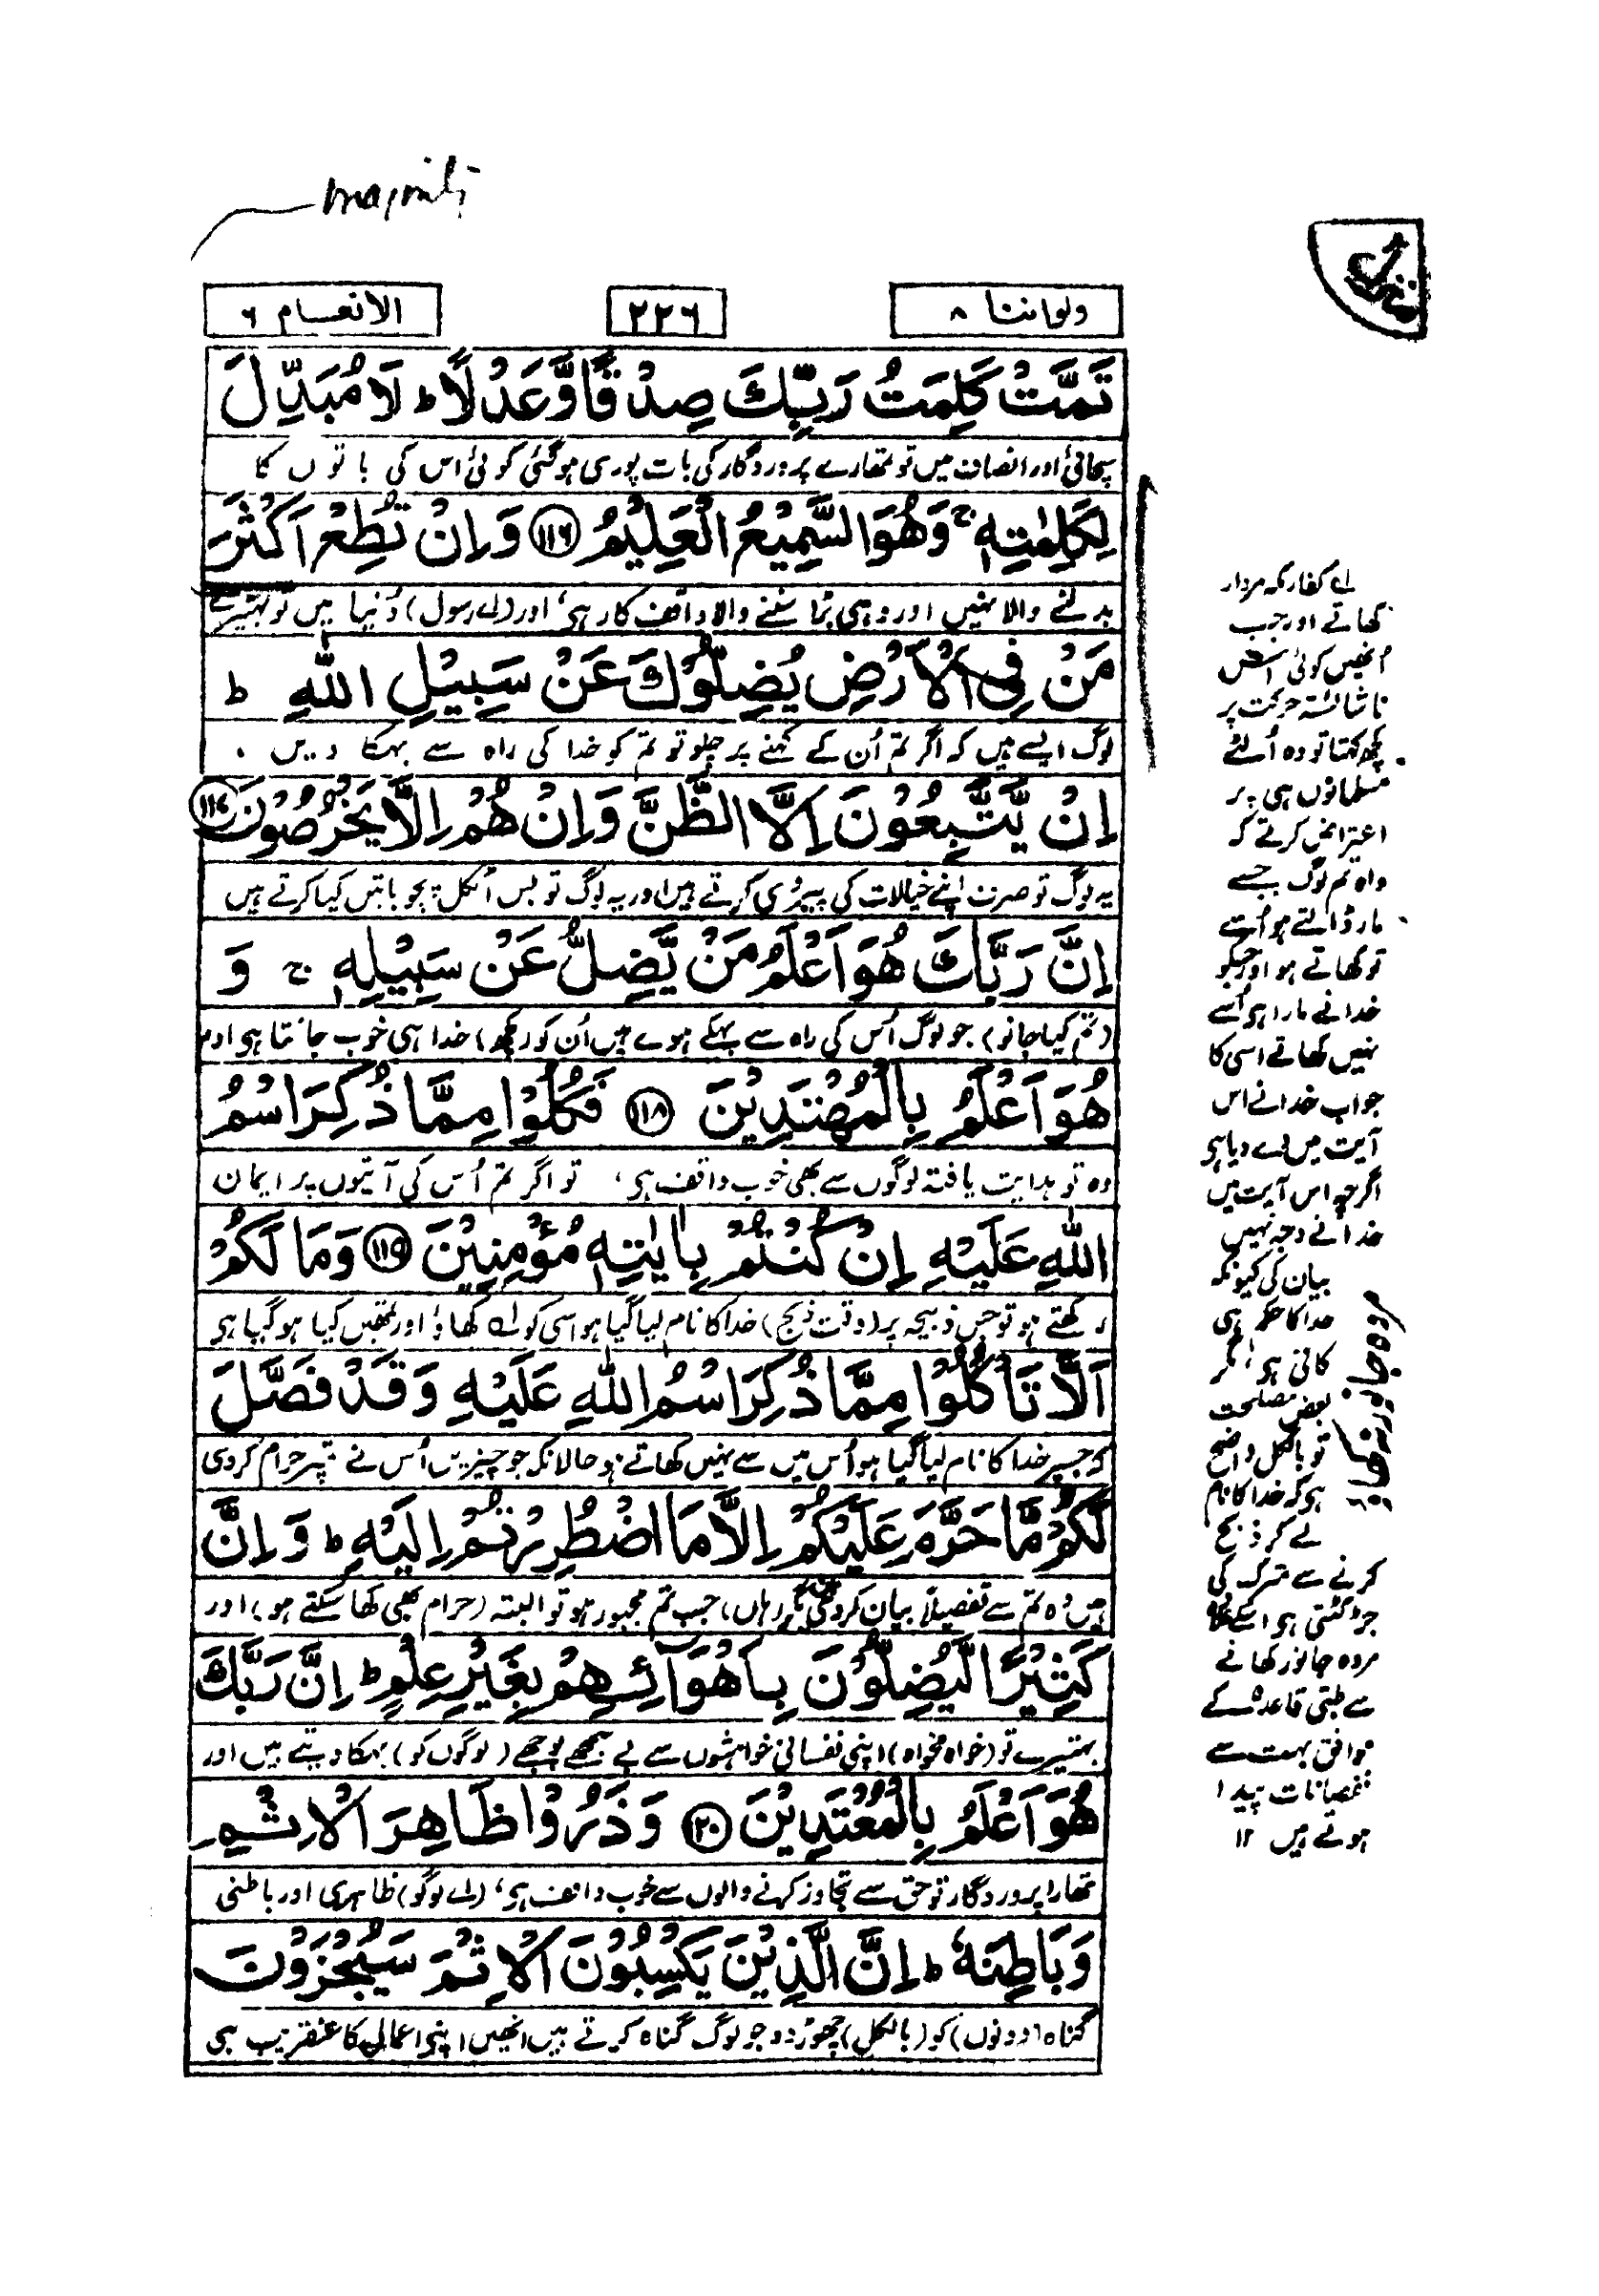 majority
ولواننا ۸
۲۲۶
الانعام ۶
تَمَّتْ كَلِمَتُ رَبِّكَ صِدْقًا وَّعَدْلًا ؕ لَا مُبَدِّلَ
سچائی اور انصاف میں تو تمھارے پروردگار کی بات پوری ہوگئی کوئی اس کی باتوں کا
لِكَلِمٰتِهٖ ۚ وَهُوَ السَّمِيْعُ الْعَلِيْمُ ﴿۱۱۶﴾ وَاِنْ تُطِعْ اَكْثَرَ
بدلنے والا نہیں اور وہی بڑا سننے والا واقف کار ہی، اور (اے رسول) دُنیا میں تو بہتیرے
مَنْ فِى الْاَرْضِ يُضِلُّوْكَ عَنْ سَبِيْلِ اللّٰهِ ؕ
لوگ ایسے ہیں کہ اگر تم اُن کے کہنے پر چلو تو تم کو خدا کی راہ سے بہکا دیں
اِنْ يَّتَّبِعُوْنَ اِلَّا الظَّنَّ وَاِنْ هُمْ اِلَّا يَخْرُصُوْنَ ﴿۱۱۷﴾
یہ لوگ تو صرف اپنے خیالات کی پیروی کرتے ہیں اور یہ لوگ تو بس اٹکل پچو باتیں کیا کرتے ہیں
اِنَّ رَبَّكَ هُوَ اَعْلَمُ مَنْ يَّضِلُّ عَنْ سَبِيْلِهٖ ۚ وَ
(تم کیا جانو) جو لوگ اُس کی راہ سے بہکے ہوے ہیں اُن کو (کچھ) خدا ہی خوب جانتا ہی اور
هُوَ اَعْلَمُ بِالْمُهْتَدِيْنَ ﴿۱۱۸﴾ فَكُلُوْا مِمَّا ذُكِرَ اسْمُ
وہ تو ہدایت یافتہ لوگوں سے بھی خوب واقف ہی، تو اگر تم اُس کی آیتوں پر ایمان
اللّٰهِ عَلَيْهِ اِنْ كُنْتُمْ بِاٰيٰتِهٖ مُؤْمِنِيْنَ ﴿۱۱۹﴾ وَمَا لَكُمْ
رکھتے ہو تو جس ذبیحہ پر (وقت ذبح) خدا کا نام لیا گیا ہو اسی کو کھاؤ اور تمھیں کیا ہوگیا ہی
اَلَّا تَاْكُلُوْا مِمَّا ذُكِرَ اسْمُ اللّٰهِ عَلَيْهِ وَقَدْ فَصَّلَ
کہ جسپر خدا کا نام لیا گیا ہو اُس میں سے نہیں کھاتے ہو حالانکہ جو چیزیں اُس نے تمپر حرام کردی
لَكُمْ مَّا حَرَّمَ عَلَيْكُمْ اِلَّا مَا اضْطُرِرْتُمْ اِلَيْهِ ؕ وَاِنَّ
ہیں وہ تم سے تفصیلاً بیان کردی ہیں مگر (ہاں) جب تم مجبور ہو تو البتہ (حرام بھی کھا سکتے ہو) اور
كَثِيْرًا لَّيُضِلُّوْنَ بِاَهْوَآئِهِمْ بِغَيْرِ عِلْمٍ ؕ اِنَّ رَبَّكَ
بہتیرے تو (خواہ مخواہ) اپنی نفسانی خواہشوں سے بے سمجھے بوجھے (لوگوں کو) بہکا دیتے ہیں اور
هُوَ اَعْلَمُ بِالْمُعْتَدِيْنَ ﴿۱۲۰﴾ وَذَرُوْا ظَاهِرَ الْاِثْمِ
تمھارا پروردگار تو حق سے تجاوز کرنے والوں سے خوب واقف ہی، (اے لوگو) ظاہری اور باطنی
وَبَاطِنَهٗ ؕ اِنَّ الَّذِيْنَ يَكْسِبُوْنَ الْاِثْمَ سَيُجْزَوْنَ
گناہ (دونوں) کو (بالکل) چھوڑ دو جو لوگ گناہ کرتے ہیں انھیں اپنے اعمال کا عنقریب ہی
کفار مکہ مردار
کھاتے اور جب
اُنھیں کوئی اس
ناشائستہ حرکت پر
کچھ کہتا تو وہ اُلٹے
مسلمانوں ہی پر
اعتراض کرتے کہ
واہ تم لوگ جسے
مار ڈالتے ہو اُسے
تو کھاتے ہو اور جسکو
خدا نے مارا ہو اُسے
نہیں کھاتے اسی کا
جواب خدا نے اس
آیت میں دے دیا ہی
اگرچہ اس آیت میں
خدا نے وجہ نہیں
بیان کی کیونکہ
خدا کا حکم ہی
کافی ہو، مگر
بعض مصلحت
تو بالکل واضح
ہی کہ خدا کا نام
لے کر ذبح
کرنے سے شرک کی
جڑ کٹتی ہی اسکے علاوہ
مردہ جانور کھانے
سے طبی قاعدے کے
موافق بہت سے
نقصانات پیدا
ہوتے ہیں ۱۲